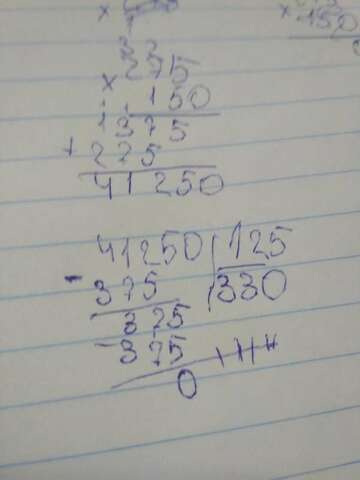 ×
× 150
3 3
275
×
150
1 1
1375
+
275
41250
41250 125
- 375 330
375
- 375
0